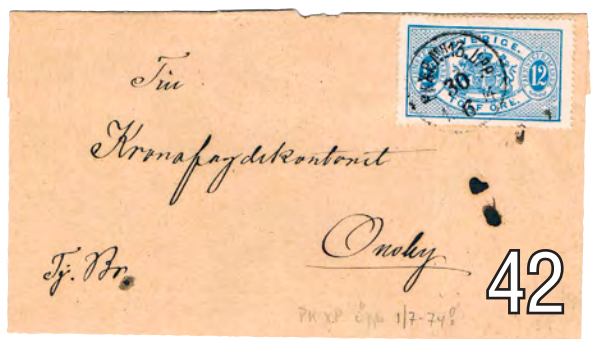 SVERIGE.
12
TOLF ÖRE.
30
6
Till
Kronofogdekontoret
Onsby
Tj. Br.
42
PK XP Upp 1/7-74!